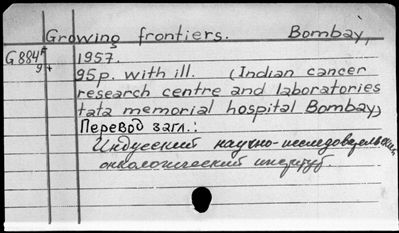 Growing frontiers. Bombay,
G884F 1957.
9+ 95p. with ill. (Indian cancer
research centre and laboratories
tata memorial hospital Bombay)
Перевод загл.:
Индусский научно-исследовательский
онкологический институт.